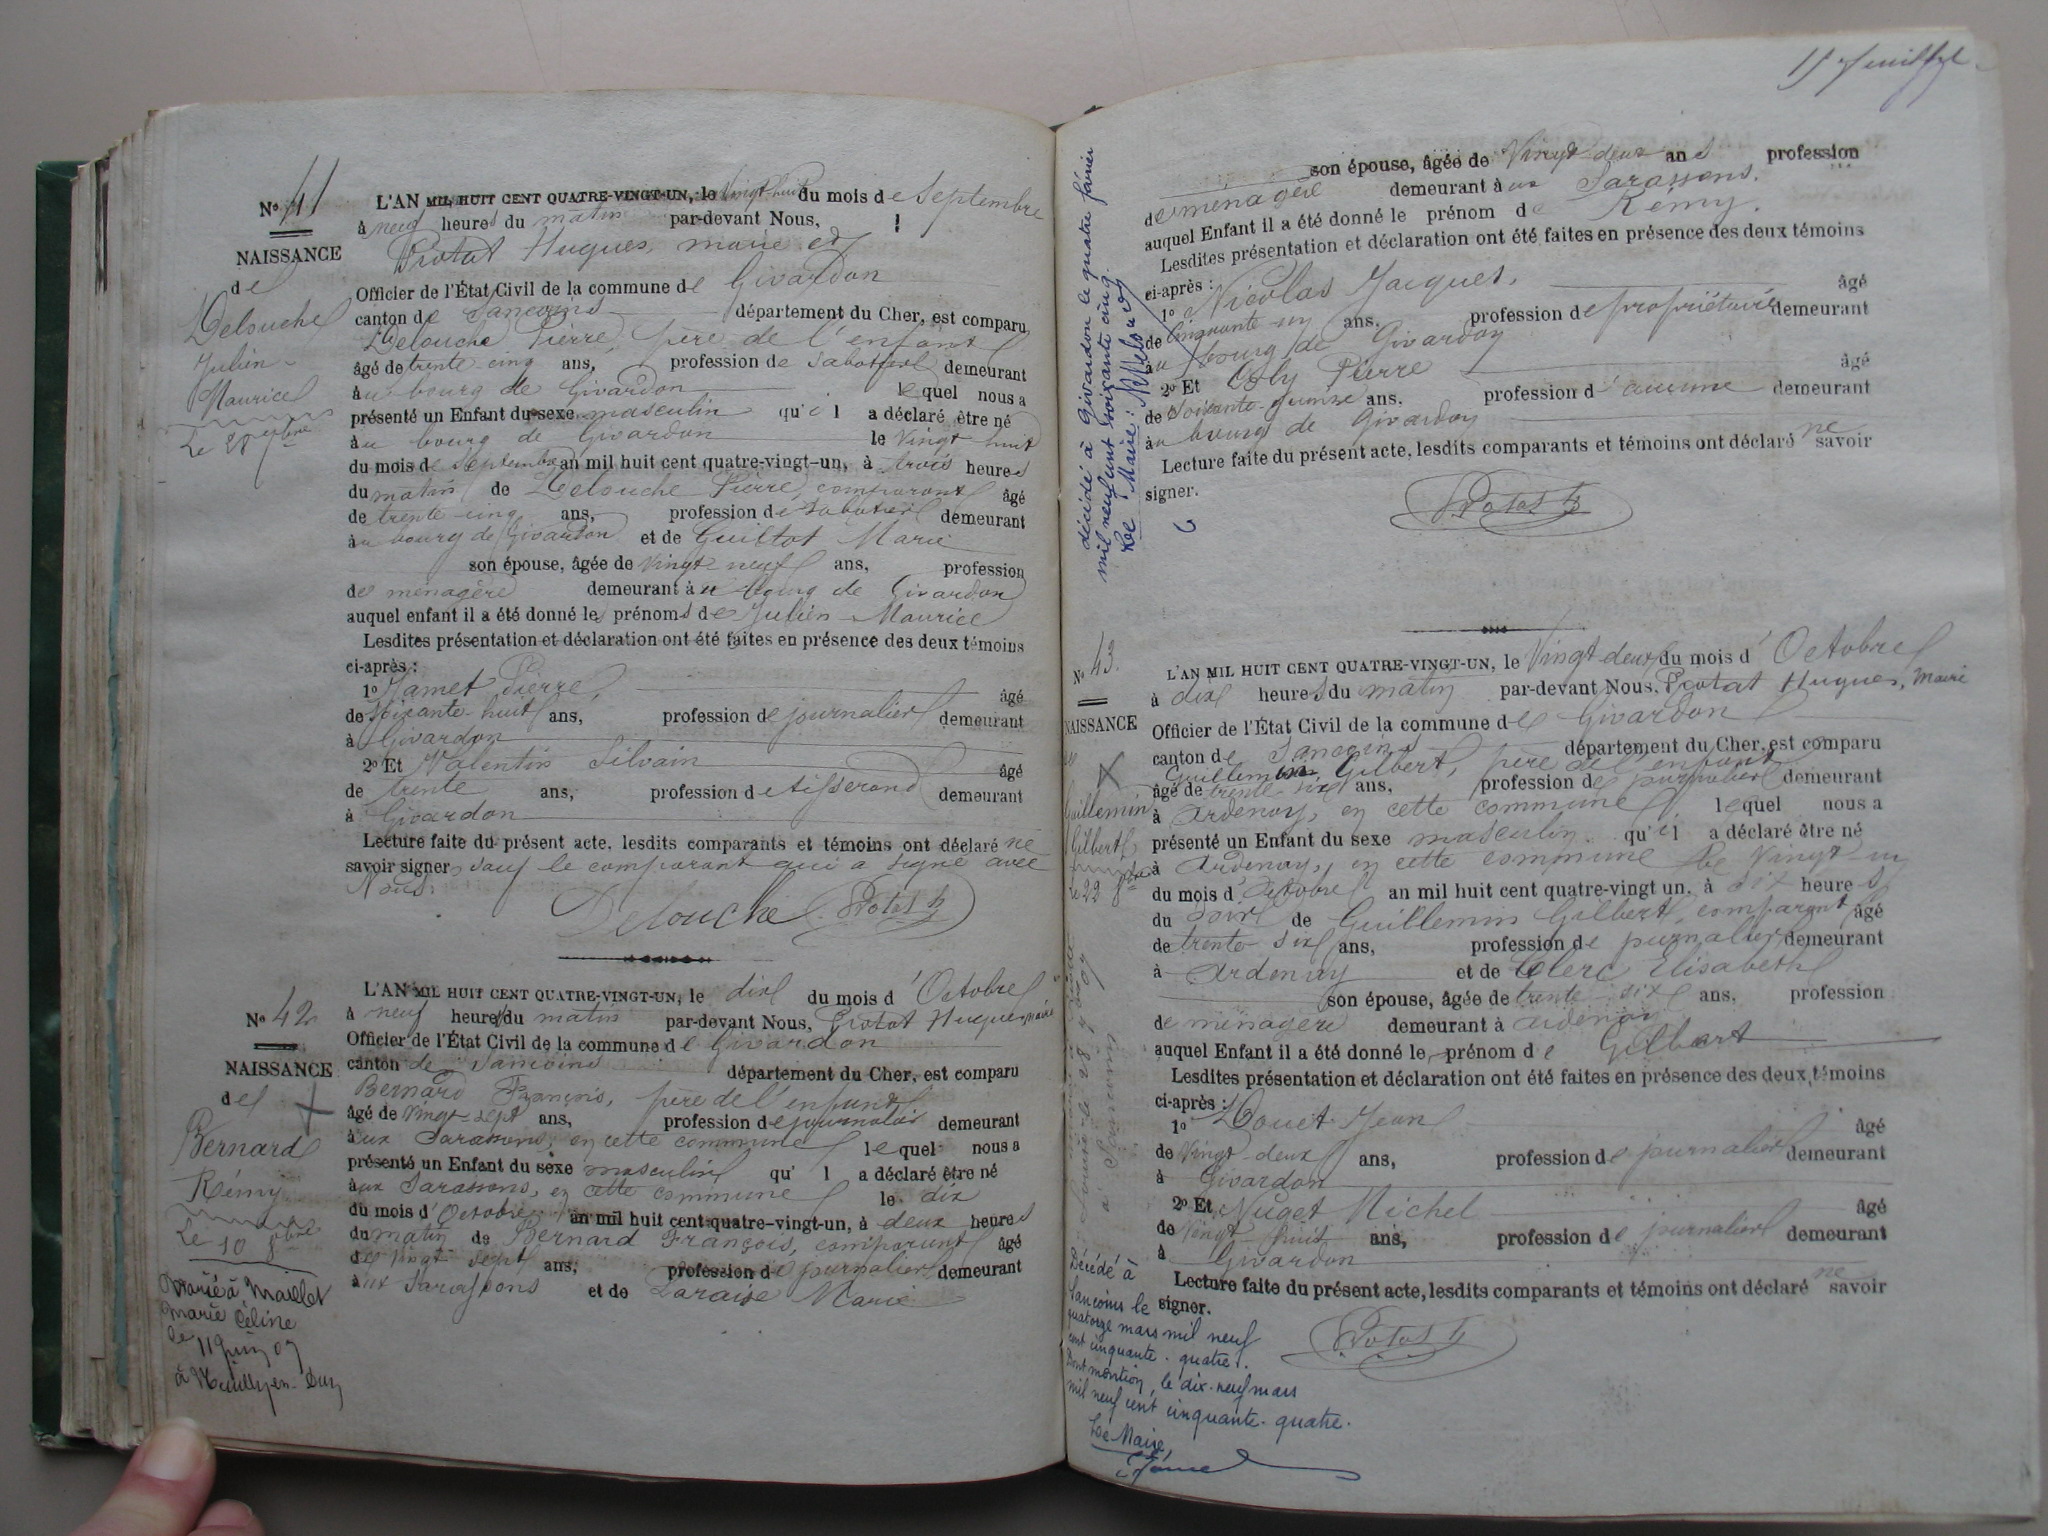 No 41
NAISSANCE
de
Delouche
Julien
Maurice
Le 28 7bre
L'AN MIL HUIT CENT QUATRE-VINGT-UN, le Vingt huit du mois de Septembre
à neuf heures du matin par-devant Nous,
Protat Hugues, maire et
Officier de l'État Civil de la commune de Givardon
canton de Sancoins département du Cher, est comparu
Delouche Pierre, père de l'enfant
âgé de trente cinq ans, profession de sabotier demeurant
au bourg de Givardon lequel nous a
présenté un Enfant du sexe masculin qu'il a déclaré être né
au bourg de Givardon le vingt huit
du mois de Septembre an mil huit cent quatre-vingt-un, à trois heures
du matin de Delouche Pierre, comparant âgé
de trente-cinq ans, profession de sabotier demeurant
au bourg de Givardon et de Guillot Marie
son épouse, âgée de Vingt neuf ans, profession
de ménagère demeurant au bourg de Givardon
auquel enfant il a été donné les prénoms de Julien Maurice
Lesdites présentation et déclaration ont été faites en présence des deux témoins
ci-après :
1o Jamet Pierre, âgé
de soixante-huit ans, profession de journalier demeurant
à Givardon
2o Et Valentin Silvain âgé
de trente ans, profession de tisserand demeurant
à Givardon
Lecture faite du présent acte, lesdits comparants et témoins ont déclaré ne
savoir signer, sauf le comparant qui a signé avec
Nous.
Delouche Protat h
No 42
NAISSANCE
de
Bernard
Rémy
Le 10 8bre
Marié à Maillet
Marie Céline
le 11 Juin 07
à Neuilly-en-Dun
L'AN MIL HUIT CENT QUATRE-VINGT-UN, le dix du mois d'Octobre
à neuf heures du matin par-devant Nous, Protat Hugues, maire
Officier de l'État Civil de la commune de Givardon
canton de Sancoins département du Cher, est comparu
Bernard François, père de l'enfant
âgé de Vingt-sept ans, profession de journalier demeurant
aux Sarassons, en cette commune lequel nous a
présenté un Enfant du sexe masculin qu' l a déclaré être né
aux Sarassons, en cette commune le dix
du mois d'Octobre an mil huit cent-quatre-vingt-un, à deux heures
du matin de Bernard François, comparant âgé
de vingt sept ans, profession de journalier demeurant
aux Sarassons et de Laraise Marie
15e feuillet
son épouse, âgée de Vingt deux ans profession
de ménagère demeurant à aux Sarassons.
auquel Enfant il a été donné le prénom de Rémy.
Lesdites présentation et déclaration ont été faites en présence des deux témoins
ci-après :
1o Nicolas Jacques, âgé
de Cinquante-un ans, profession de propriétaire demeurant
au bourg de Givardon
2o Et Pierre âgé
de soixante-quinze ans, profession d'aucune demeurant
au bourg de Givardon
Lecture faite du présent acte, lesdits comparants et témoins ont déclaré ne savoir
signer.
Protat h
décédé à Givardon le quatre février
mil neuf cent soixante cinq.
Le Maire :
No 43
NAISSANCE
de
Guillemin
Gilbert
Le 22 8bre
L'AN MIL HUIT CENT QUATRE-VINGT-UN, le Vingt-deux du mois d'Octobre
à dix heures du matin par-devant Nous, Protat Hugues, Maire
Officier de l'État Civil de la commune de Givardon
canton de Sancoins département du Cher, est comparu
Guillemin Gilbert, père de l'enfant
âgé de trente six ans, profession de journalier demeurant
à Ardenay, en cette commune lequel nous a
présenté un Enfant du sexe masculin qu'il a déclaré être né
à Ardenay, en cette commune le Vingt-un
du mois d'Octobre an mil huit cent quatre-vingt un, à six heures
du soir de Guillemin Gilbert, comparant âgé
de trente six ans, profession de journalier demeurant
à Ardenay et de Clerc Elisabeth
son épouse, âgée de trente six ans, profession
de ménagère demeurant à Ardenay
auquel Enfant il a été donné le prénom de Gilbert
Lesdites présentation et déclaration ont été faites en présence des deux témoins
ci-après :
1o Douet Jean âgé
de Vingt deux ans, profession de journalier demeurant
à Givardon
2o Et Nuget Michel âgé
de Vingt-huit ans, profession de journalier demeurant
à Givardon
Lecture faite du présent acte, lesdits comparants et témoins ont déclaré ne savoir
signer.
Protat h
à Sancoins
Décédé à
Sancoins le
quatorze mars mil neuf
cent cinquante-quatre.
Dont mention, le dix-neuf mars
mil neuf cent cinquante-quatre.
Le Maire,